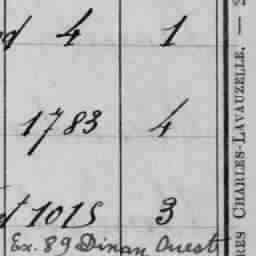 4 1
1783 4
1015 3
Ex. 89 Dinan Ouest
RES CHARLES-LAVAUZELLE. —